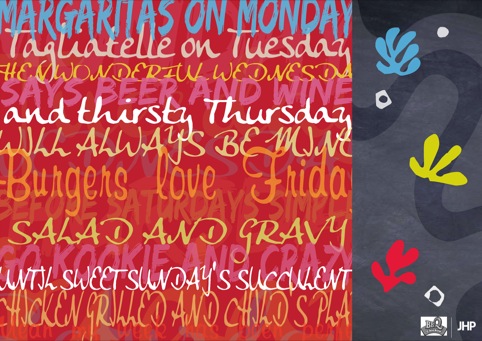 MARGARITAS ON MONDAY
Tagliatelle on Tuesday
THEN WONDERFUL WEDNESDA
SAYS BEER AND WINE
and thirsty Thursday
WILL ALWAYS BE MINE
Burgers love Frida
BEFORE SATURDAYS SIMPL
SALAD AND GRAVY
GO KOOKIE AND CRAZY
UNTIL SWEET SUNDAY'S SUCCULENT
CHICKEN GRILLED AND CHILD'S PLA
JHP